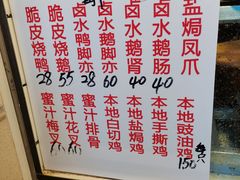 脆皮烧鸭
28
脆皮烧鹅
55
卤水鸭脚亦
38
卤水鹅脚亦
60
卤水鹅肾
40
卤水鹅肠
40
盐焗凤爪
蜜汁梅叉
蜜汁花叉
蜜汁排骨
本地白切鸡
本地盐焗鸡
本地手撕鸡
本地豉油鸡
150